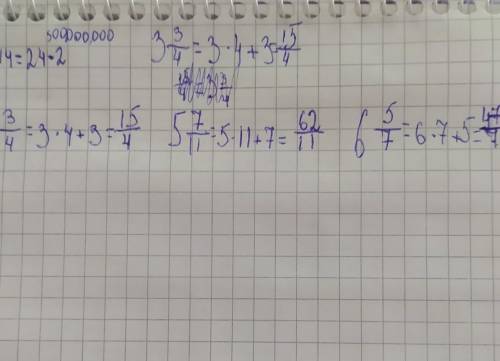 500,000,000
14=24·2
3 3/4 = 3·4+3=15/4
3/4 = 3·4+3 = 15/4  5 7/11 = 5·11+7 = 62/11  6 5/7 = 6·7+5 = 47/7